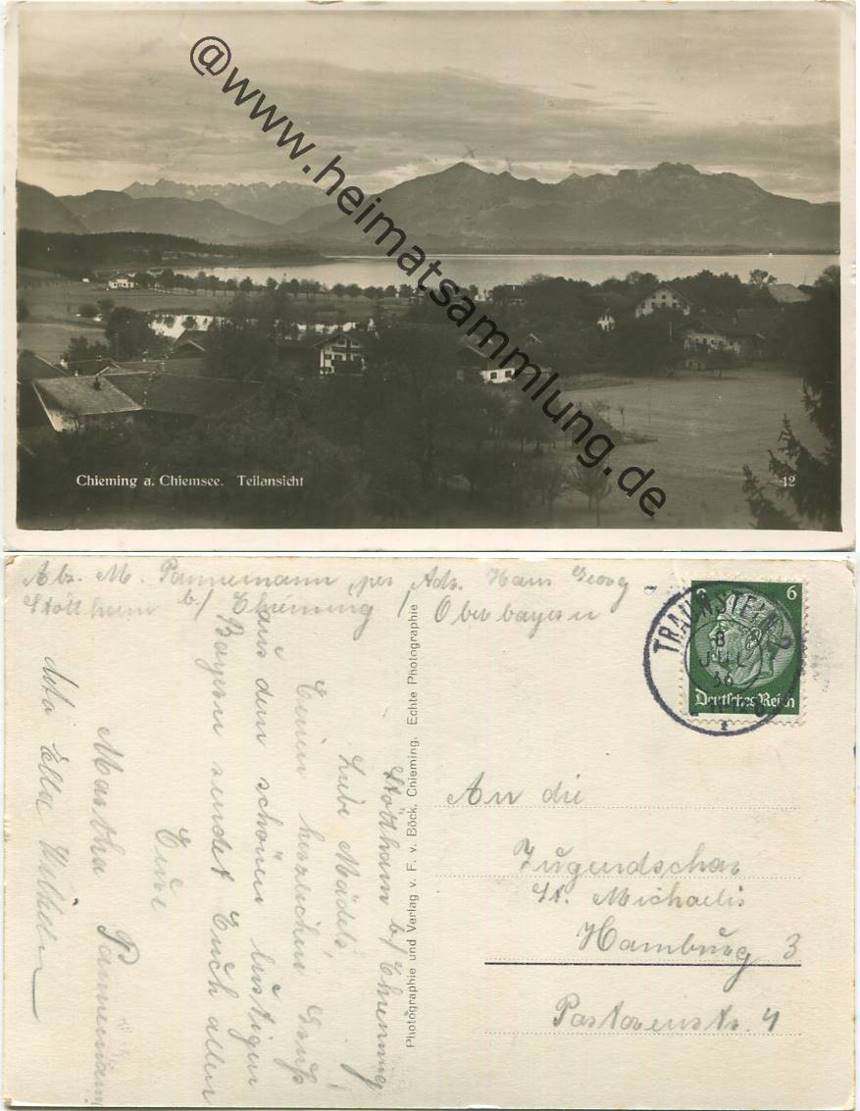 @www.heimatsammlung.de
Chieming a. Chiemsee. Teilansicht
12
Abs. M. Pannemann, per Ads. Hans Georg
Stöttham b/ Chieming / Oberbayern
6
TRAUNSTEIN 2
8
JUL
36
Deutsches Reich
Stöttham b/ Chieming
Liebe Mädels!
Einen herzlichen Gruß
aus dem schönen lustigen
Bayern sendet Euch allen
Eure
Martha Pannemann
Photographie und Verlag v. F. v. Böck, Chieming. Echte Photographie
An die
Jugendschar
St. Michaelis
Hamburg 3
Pastorenstr. 4